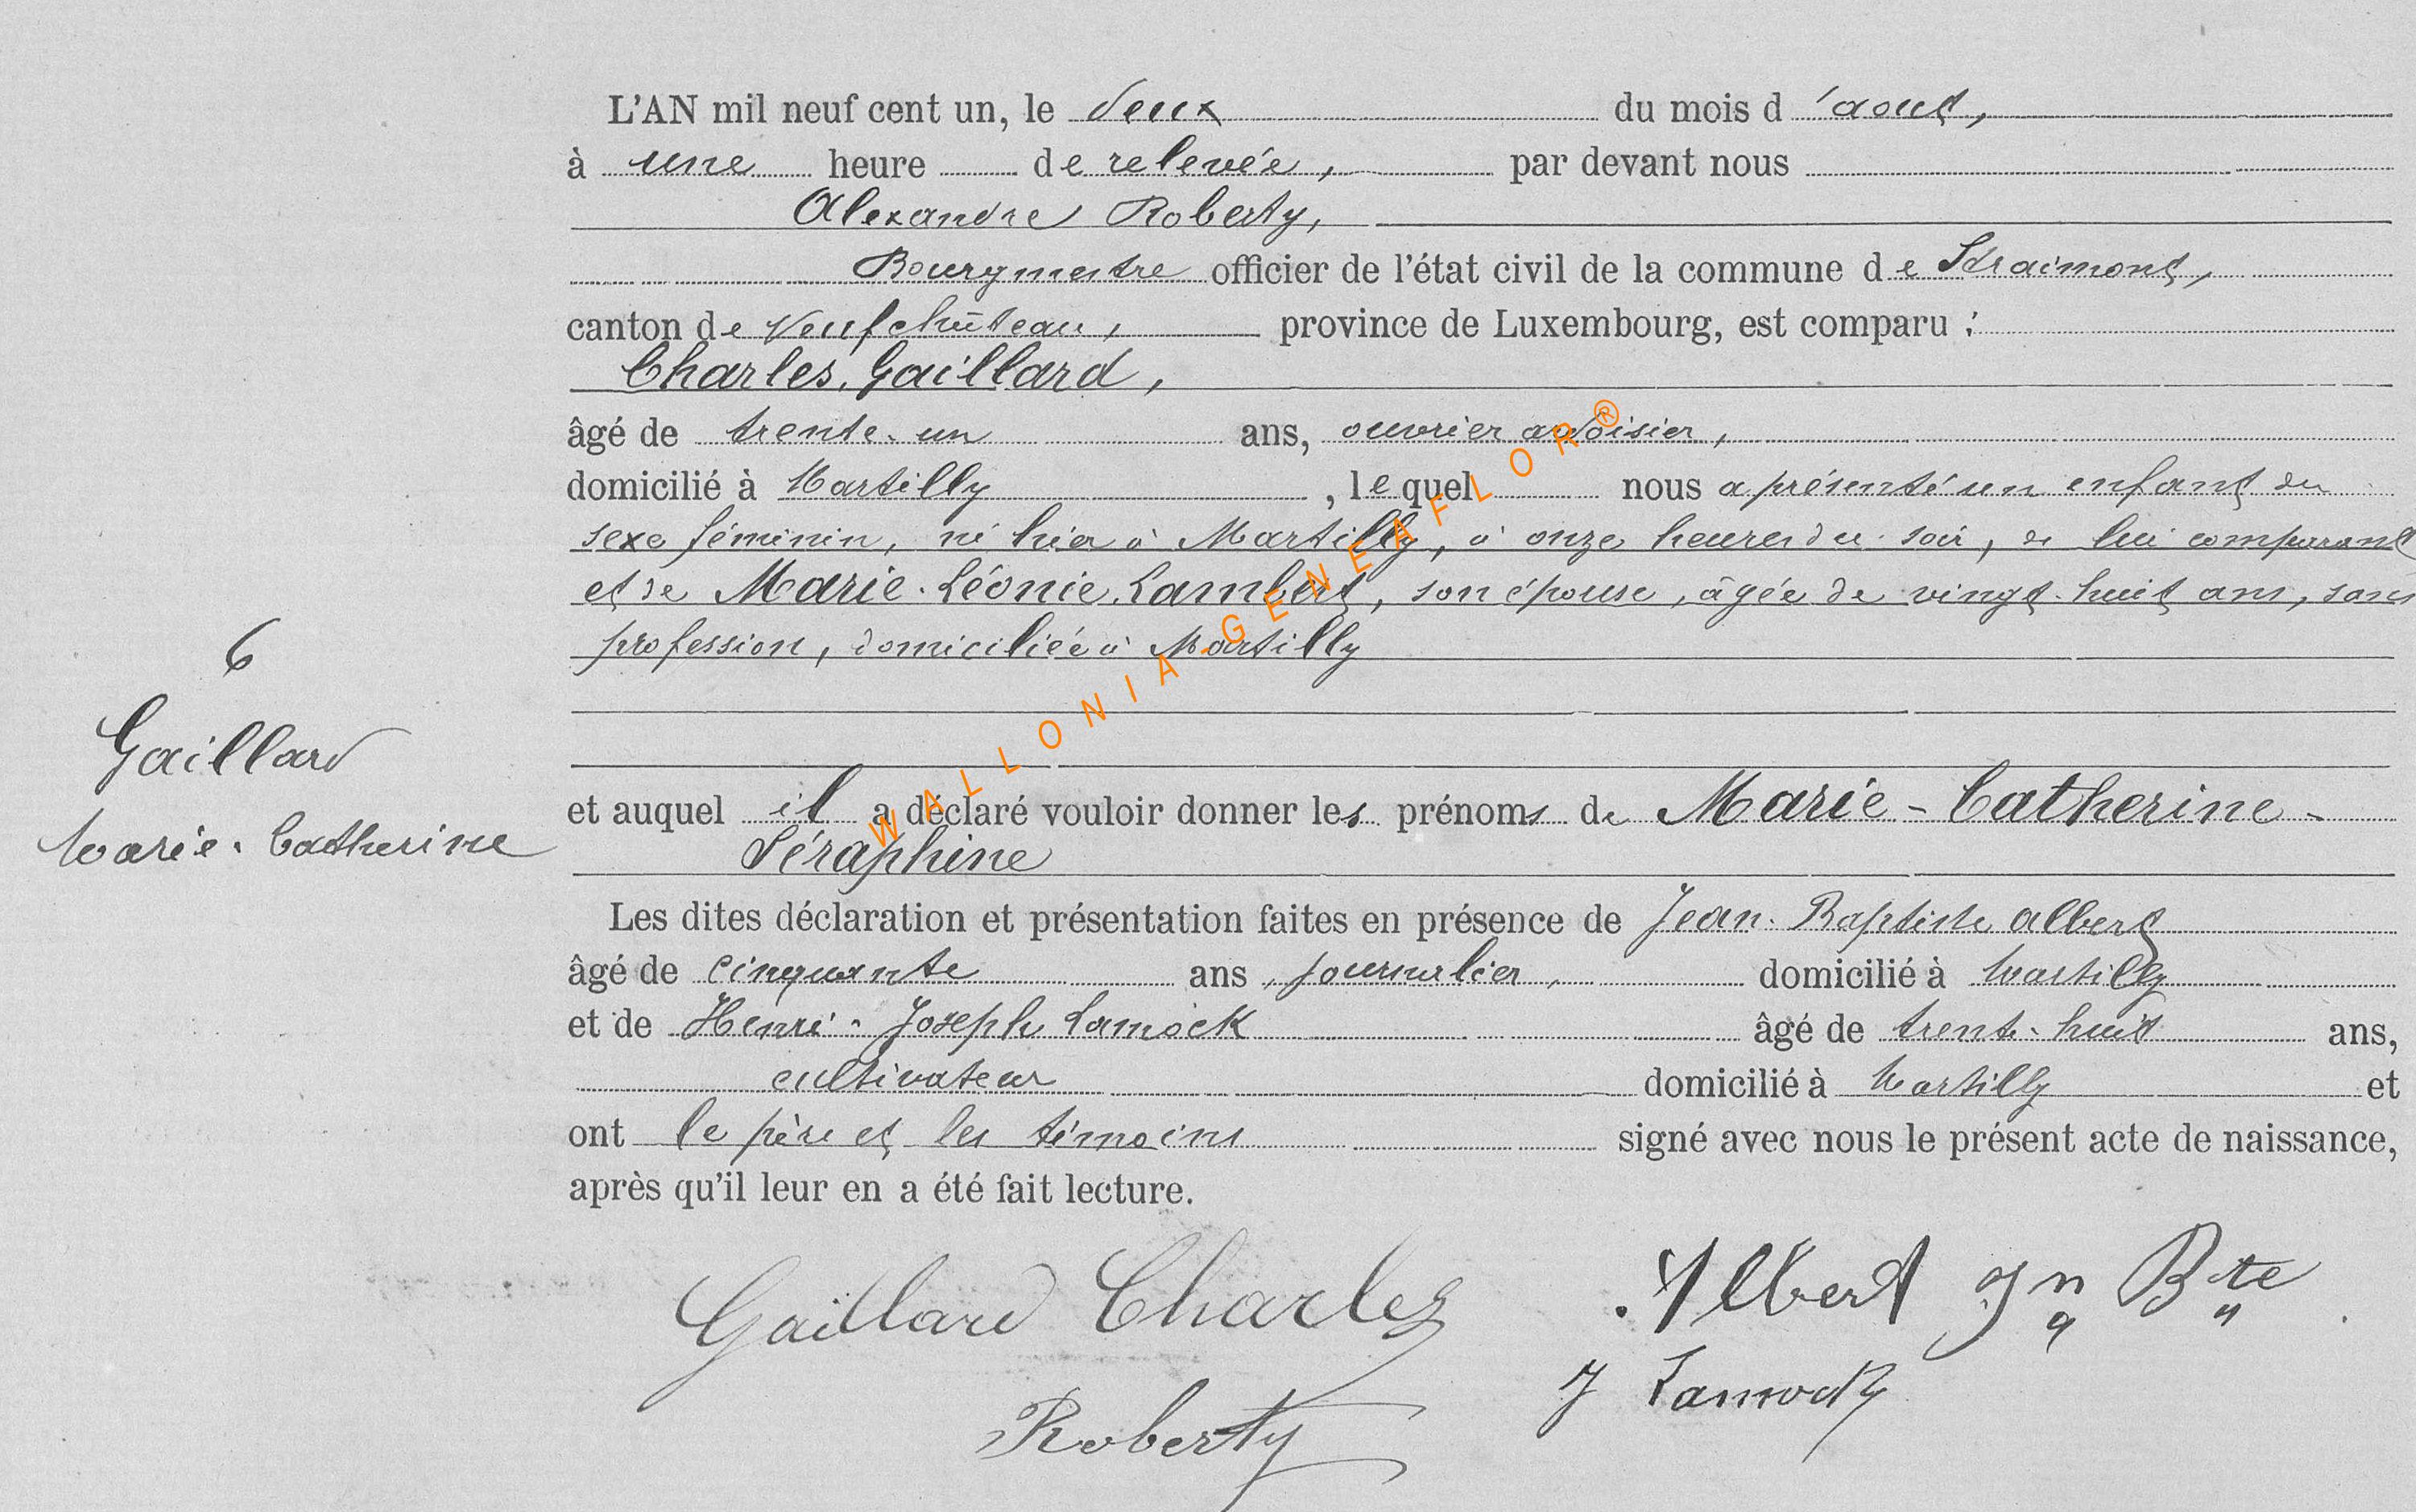 L'AN mil neuf cent un, le deux du mois d'aout,
à une heure de relevée, par devant nous
Alexandre Roberty,
Bourgmestre officier de l'état civil de la commune de Straimont,
canton de Neufchâteau, province de Luxembourg, est comparu :
Charles Gaillard,
âgé de trente-un ans, ouvrier ardoisier,
domicilié à Martilly, lequel nous a présenté un enfant du
sexe féminin, né hier à Martilly, à onze heures du soir, de lui comparant
et de Marie-Léonie Lambert, son épouse, âgée de vingt-huit ans, sans
profession, domiciliée à Martilly
6
Gaillard
Marie-Catherine
et auquel il a déclaré vouloir donner les prénoms de Marie-Catherine-
Séraphine
Les dites déclaration et présentation faites en présence de Jean-Baptiste Albert
âgé de cinquante ans, journalier, domicilié à Martilly
et de Henri-Joseph Lamock âgé de trente-huit ans,
cultivateur domicilié à Martilly et
ont le père et les témoins signé avec nous le présent acte de naissance,
après qu'il leur en a été fait lecture.
Gaillard Charles
Albert Jn Bte
J Lamock
Roberty
WALLONIA-GENEAFLOR®